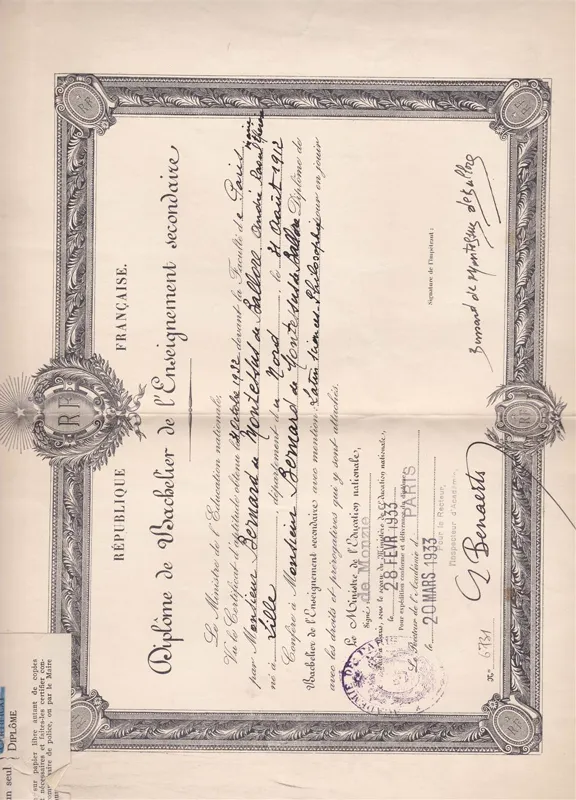 RÉPUBLIQUE FRANÇAISE.
RF
Diplôme de Bachelier de l'Enseignement secondaire
Le Ministre de l'Education nationale,
Vu le Certificat d'aptitude obtenu le Octobre 1932 devant la Faculté de Paris
par Monsieur Bernard de Montessus de Ballore André Raoul Marie
né à Lille, département du Nord, le 31 Août 1912
Confère à Monsieur Bernard de Montessus de Ballore Diplôme de
Bachelier de l'Enseignement secondaire avec mention Latin Sciences-Philosophie pour en jouir
avec les droits et prérogatives qui y sont attachés.
Le Ministre de l'Education nationale,
Signé: de Monzie
Fait à Paris, sous le sceau du Ministère de l'Education nationale,
le 28 FEVR 1933
Pour expédition conforme et délivrance du diplôme
Le Recteur de l'Académie d PARIS
le 20 MARS 1933
Pour le Recteur,
l'Inspecteur d'Académie,
G Benaerts
Nº 6731
Signature de l'Impétrant:
Bernard de Montessus de Ballore
un seul DIPLÔME
sur papier libre autant de copies
nécessaires et faites-les certifier con-
saire de police, ou par le Maire